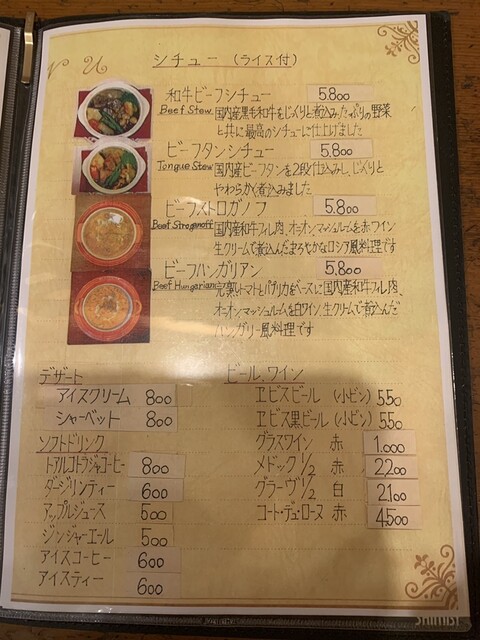 シチュー (ライス付)
和牛ビーフシチュー 5.800
Beef Stew 国内産黒毛和牛をじっくりと煮込みたっぷりの野菜
と共に最高のシチューに仕上げました
ビーフタンシチュー 5.800
Tongue Stew 国内産ビーフタンを2段仕込みし、じっくりと
やわらかく煮込みました
ビーフストロガノフ 5.800
Beef Stroganoff 国内産和牛フィレ肉、オーオンマッシュルームを赤ワイン
生クリームで煮込んだまろやかなロシア風料理です
ビーフハンガリアン 5.800
Beef Hungarian 完熟トマトとパプリカをベースに国内産和牛フィレ肉、
オーオンマッシュルームを白ワイン、生クリームで煮込んだ
ハンガリー風料理です
デザート
アイスクリーム 800
シャーベット 800
ソフトドリンク
トアルコトラジャコーヒー 800
ダージリンティー 600
アップルジュース 500
ジンジャーエール 500
アイスコーヒー 600
アイスティー 600
ビール、ワイン
ヱビスビール (小ビン) 550
ヱビス黒ビール (小ビン) 550
グラスワイン 赤 1.000
メドック1/2 赤 2.200
グラーヴ1/2 白 2.100
コート・デュ・ローヌ 赤 4.500